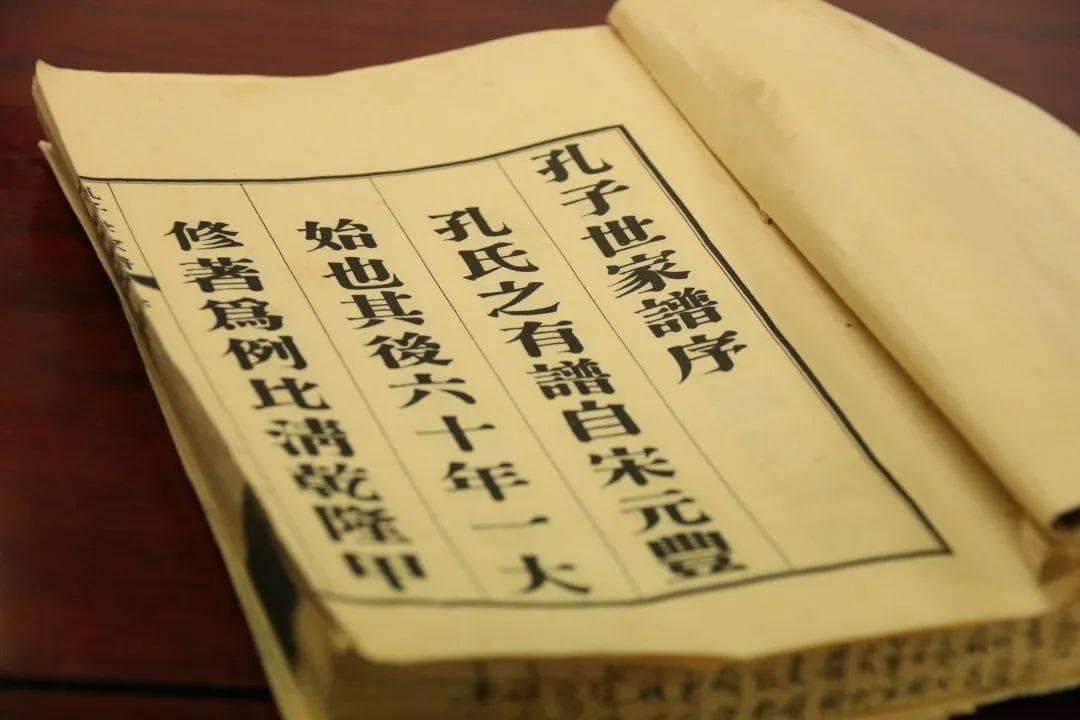 孔子世家譜序
孔氏之有譜自宋元豐
始也其後六十年一大
修著爲例比清乾隆甲